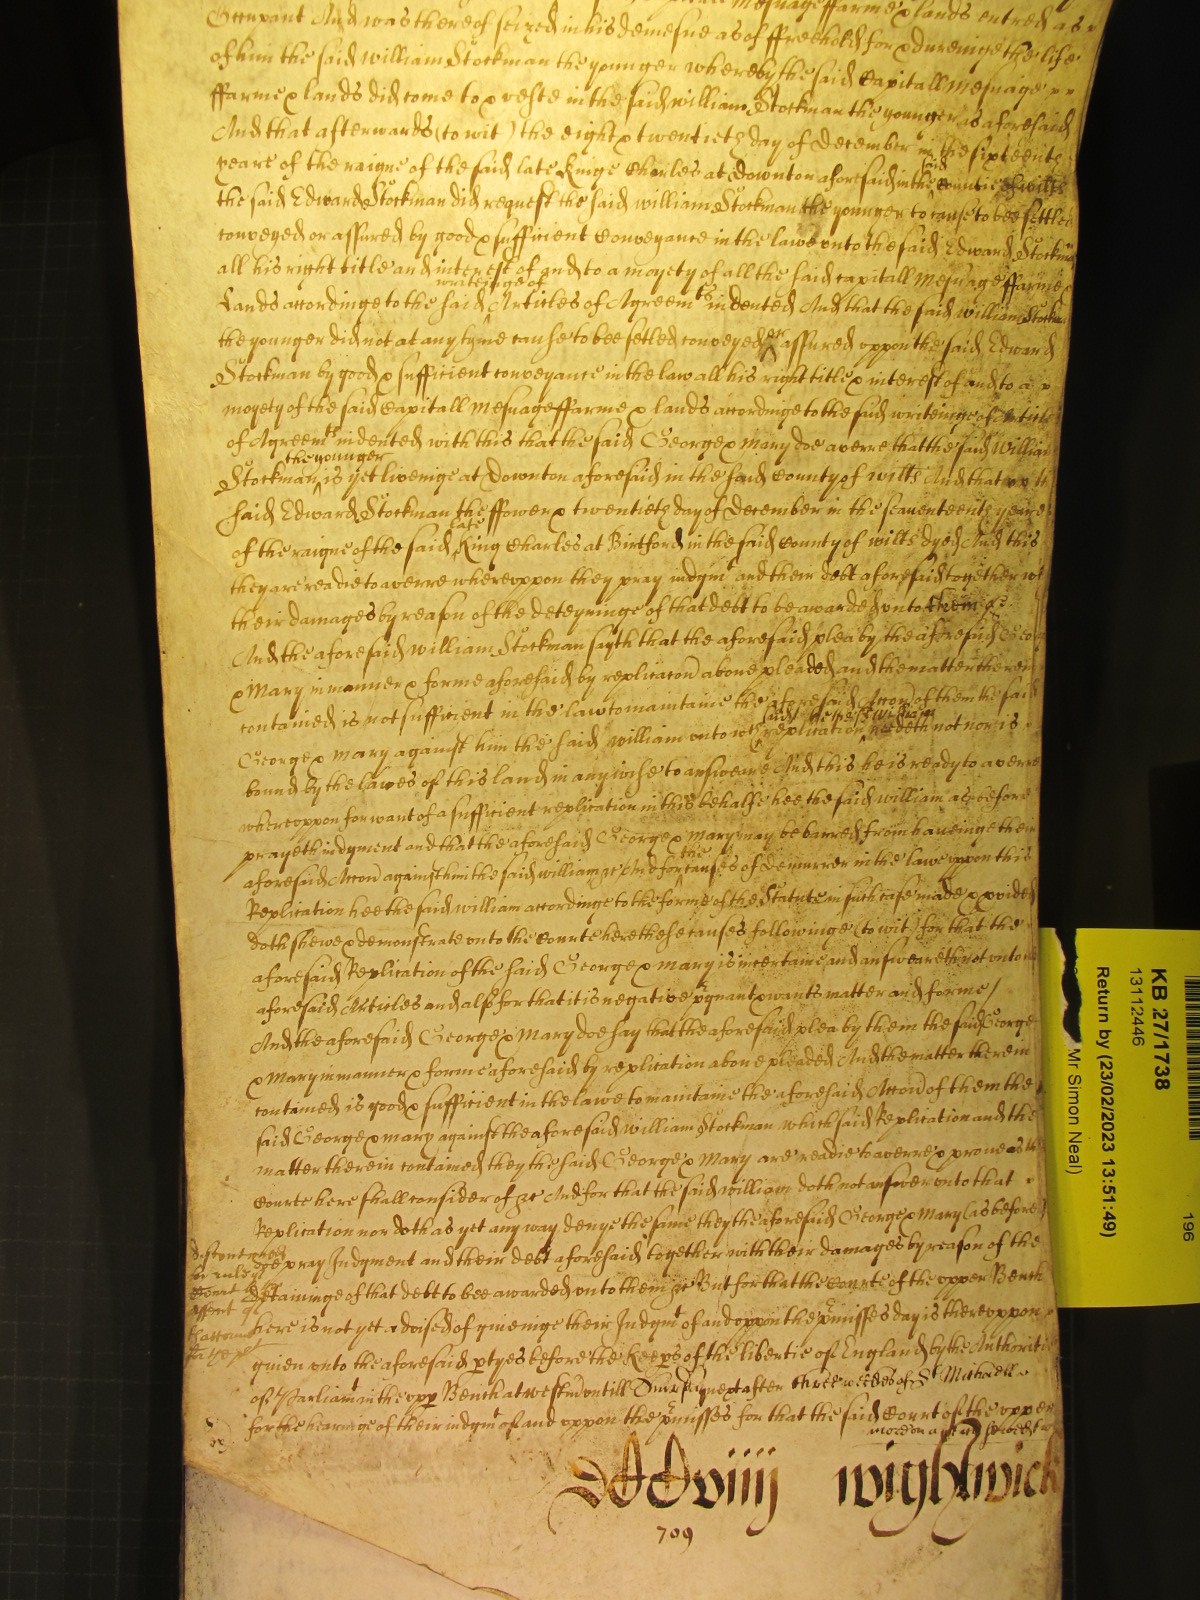 Occupant And was thereof seized in his demesne as of ffreehold for & dureinge the life
of him the said William Stockman the younger whereby the said Capitall Mesuage
ffarme & lands did come to & veste in the said William Stockman the younger as aforesaid
And that afterwards (to wit) the eight & twentieth day of December in the sixteenth
yeare of the raigne of the said late Kinge Charles at Downton aforesaid in the said Countie of Wilts
the said Edward Stockman did request the said William Stockman the younger to cause to bee settled
conveyed or assured by good & sufficient Conveyance in the lawe unto the said Edward Stockman
all his right title and interest of and to a moyety of all the said capitall Mesuage ffarme
Lands accordinge to the said writeinge of Articles of Agreemts indented And that the said William Stockm
the younger did not at any tyme cause to bee setled conveyed or assured uppon the said Edward
Stockman by good & sufficient conveyance in the law all his right title & interest of and to a
moyety of the said Capitall Mesuage ffarme & lands accordinge to the said writeinge of Article
of Agreemts indented with this that the said George & Mary doe averre that the said Willia
Stockman the younger is yet liveinge at Downton aforesaid in the said County of Wilts And that
said Edward Stockman the ffower & twentieth day of December in the seaventeenth yeare
of the raigne of the said late King Charles at Birtford in the said County of Wilts dyed And this
they are readie to averre whereuppon they pray iudgmt and their debt aforesaid together wt
their damages by reason of the deteyninge of that debt to be awarded unto them &c
And the aforesaid William Stockman sayth that the aforesaid plea by the aforesaid Geo
& Mary in manner & forme aforesaid by replicacon above pleaded and the matter therein
contained is not sufficient in the law to maintaine the aforesaid Accon of them the said
George & Mary against him the said William unto wch said replication hee the said William needeth not nor is
bound by the lawes of this land in any wise to answeare And this he is ready to averre
whereuppon for want of a sufficient replication in this behalfe hee the said William as before
prayeth iudgment and that the aforesaid George & Mary may be barred from haveinge their
aforesaid Accon against him the said William &c And for the causes of demurrer in the lawe uppon this
Replication hee the said William accordinge to the forme of the Statute in such case made & pvided
doth shewe & demonstrate unto the Courte here these causes followinge (to wit) for that the
aforesaid Replication of the said George & Mary is incertaine and answeareth not unto
aforesaid Articles and also for that it is negative pgnant & wants matter and forme /
And the aforesaid George & Mary doe say that the aforesaid plea by them the said George
& Mary in manner & forme aforesaid by replication above pleaded And the matter therein
contained is good & sufficient in the lawe to maintaine the aforesaid Accon of them the
said George & Mary against the aforesaid William Stockman which said Replication and the
matter therein contained they the said George & Mary are readie to averre & prove as
Courte here shall consider of &c And for that the said William doth not answer unto that
Replication nor doth as yet any way denye the same they the aforesaid George & Mary (as before)
doe pray Judgment and their debt aforesaid together with their damages by reason of the
detaininge of that debt to bee awarded unto them &c But for that the Courte of the upper Bench
here is not yet advised of giveinge their Judgmt of and uppon the pmisses day is thereuppon
given unto the aforesaid ptyes before the Keeps of the libertie of England by the Authoritie
of Parliamt in the upp Bench at westm untill next after three weekes of St Michaell
for the hearinge of their iudgmt of and uppon the pmisses for that the said Court of the upper
wightwick
709
KB 27/1738
13112446
Return by (23/02/2023 13:51:49)
Mr Simon Neal)
196